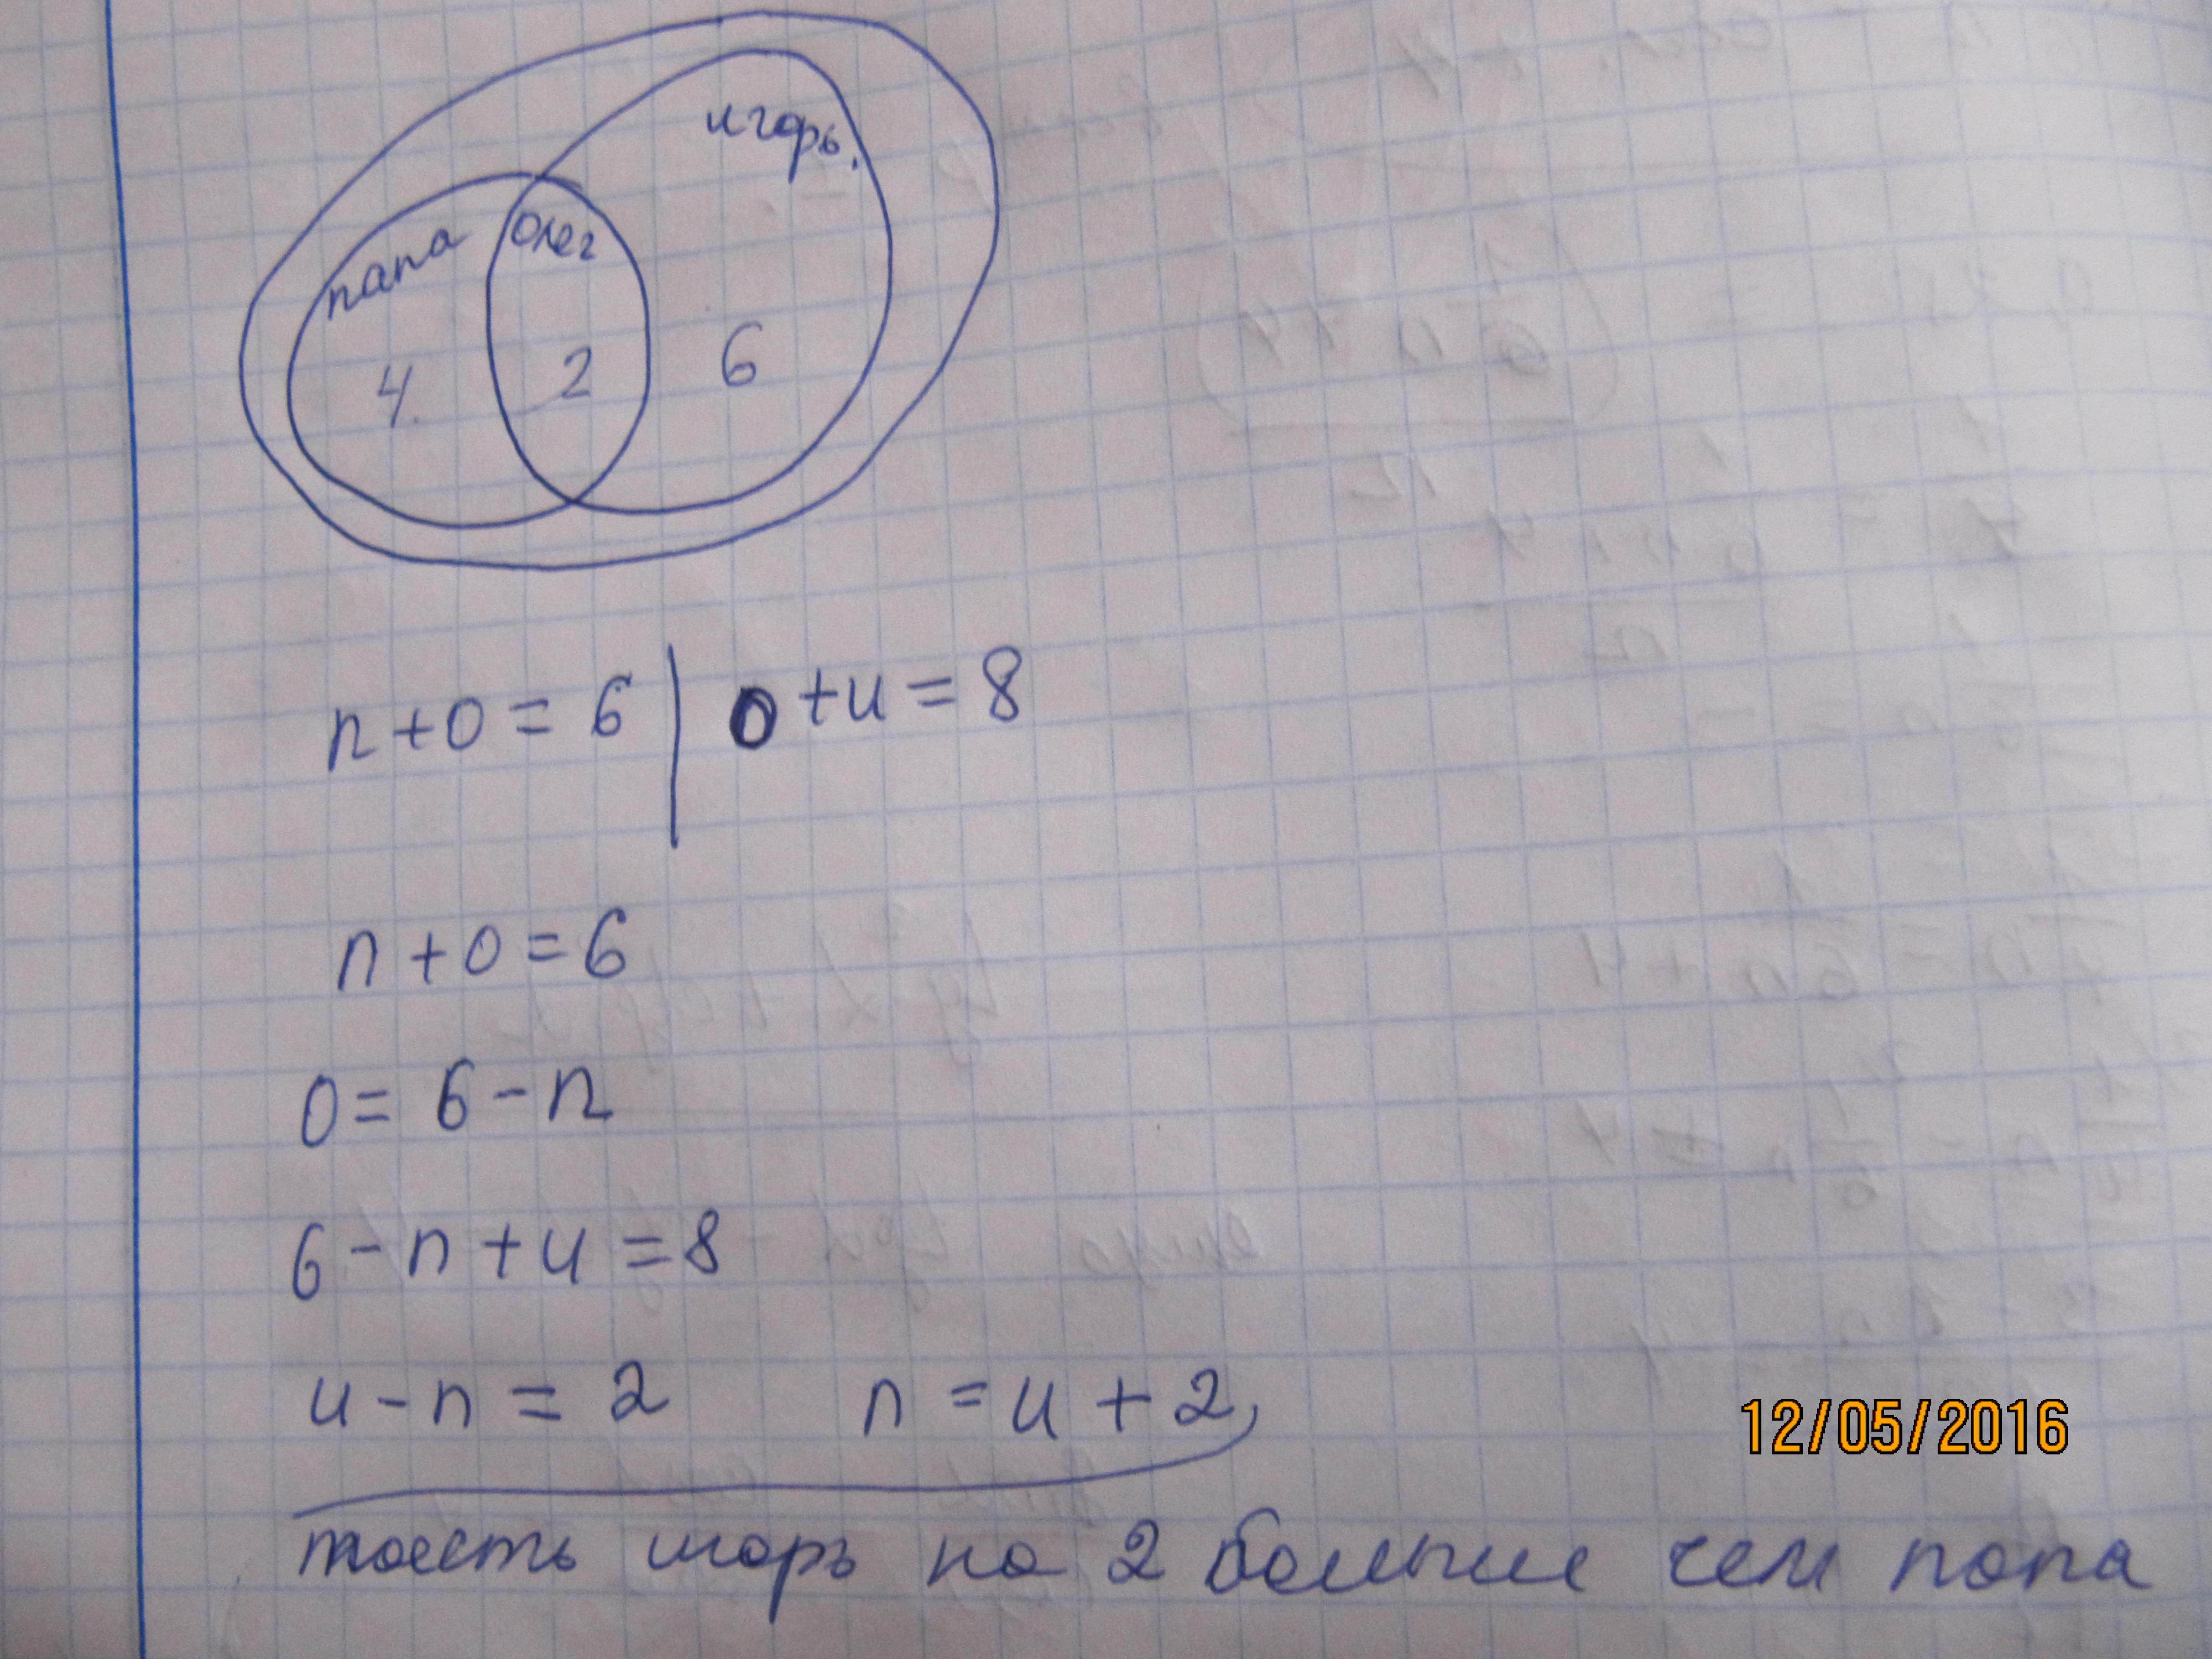 игорь.
папа олег
4. 2 6
п+о=6 | о+и=8
п+о=6
о=6-п
6-п+и=8
и-п=2 п=и+2
тоесть игорь на 2 больше чем папа
12/05/2016